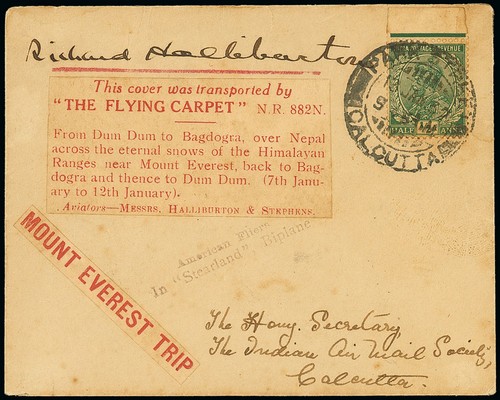 Richard Halliburton
This cover was transported by
"THE FLYING CARPET" N.R. 882N.
From Dum Dum to Bagdogra, over Nepal
across the eternal snows of the Himalayan
Ranges near Mount Everest, back to Bag-
dogra and thence to Dum Dum. (7th Janu-
ary to 12th January).
Aviators—MESSRS, HALLIBURTON & STEPHENS.
POSTAGE REVENUE
HALF ANNA
CALCUTTA
American Fliers
In "Stearland" Biplane
MOUNT EVEREST TRIP
The Hony. Secretary
The Indian Air Mail Society,
Calcutta.